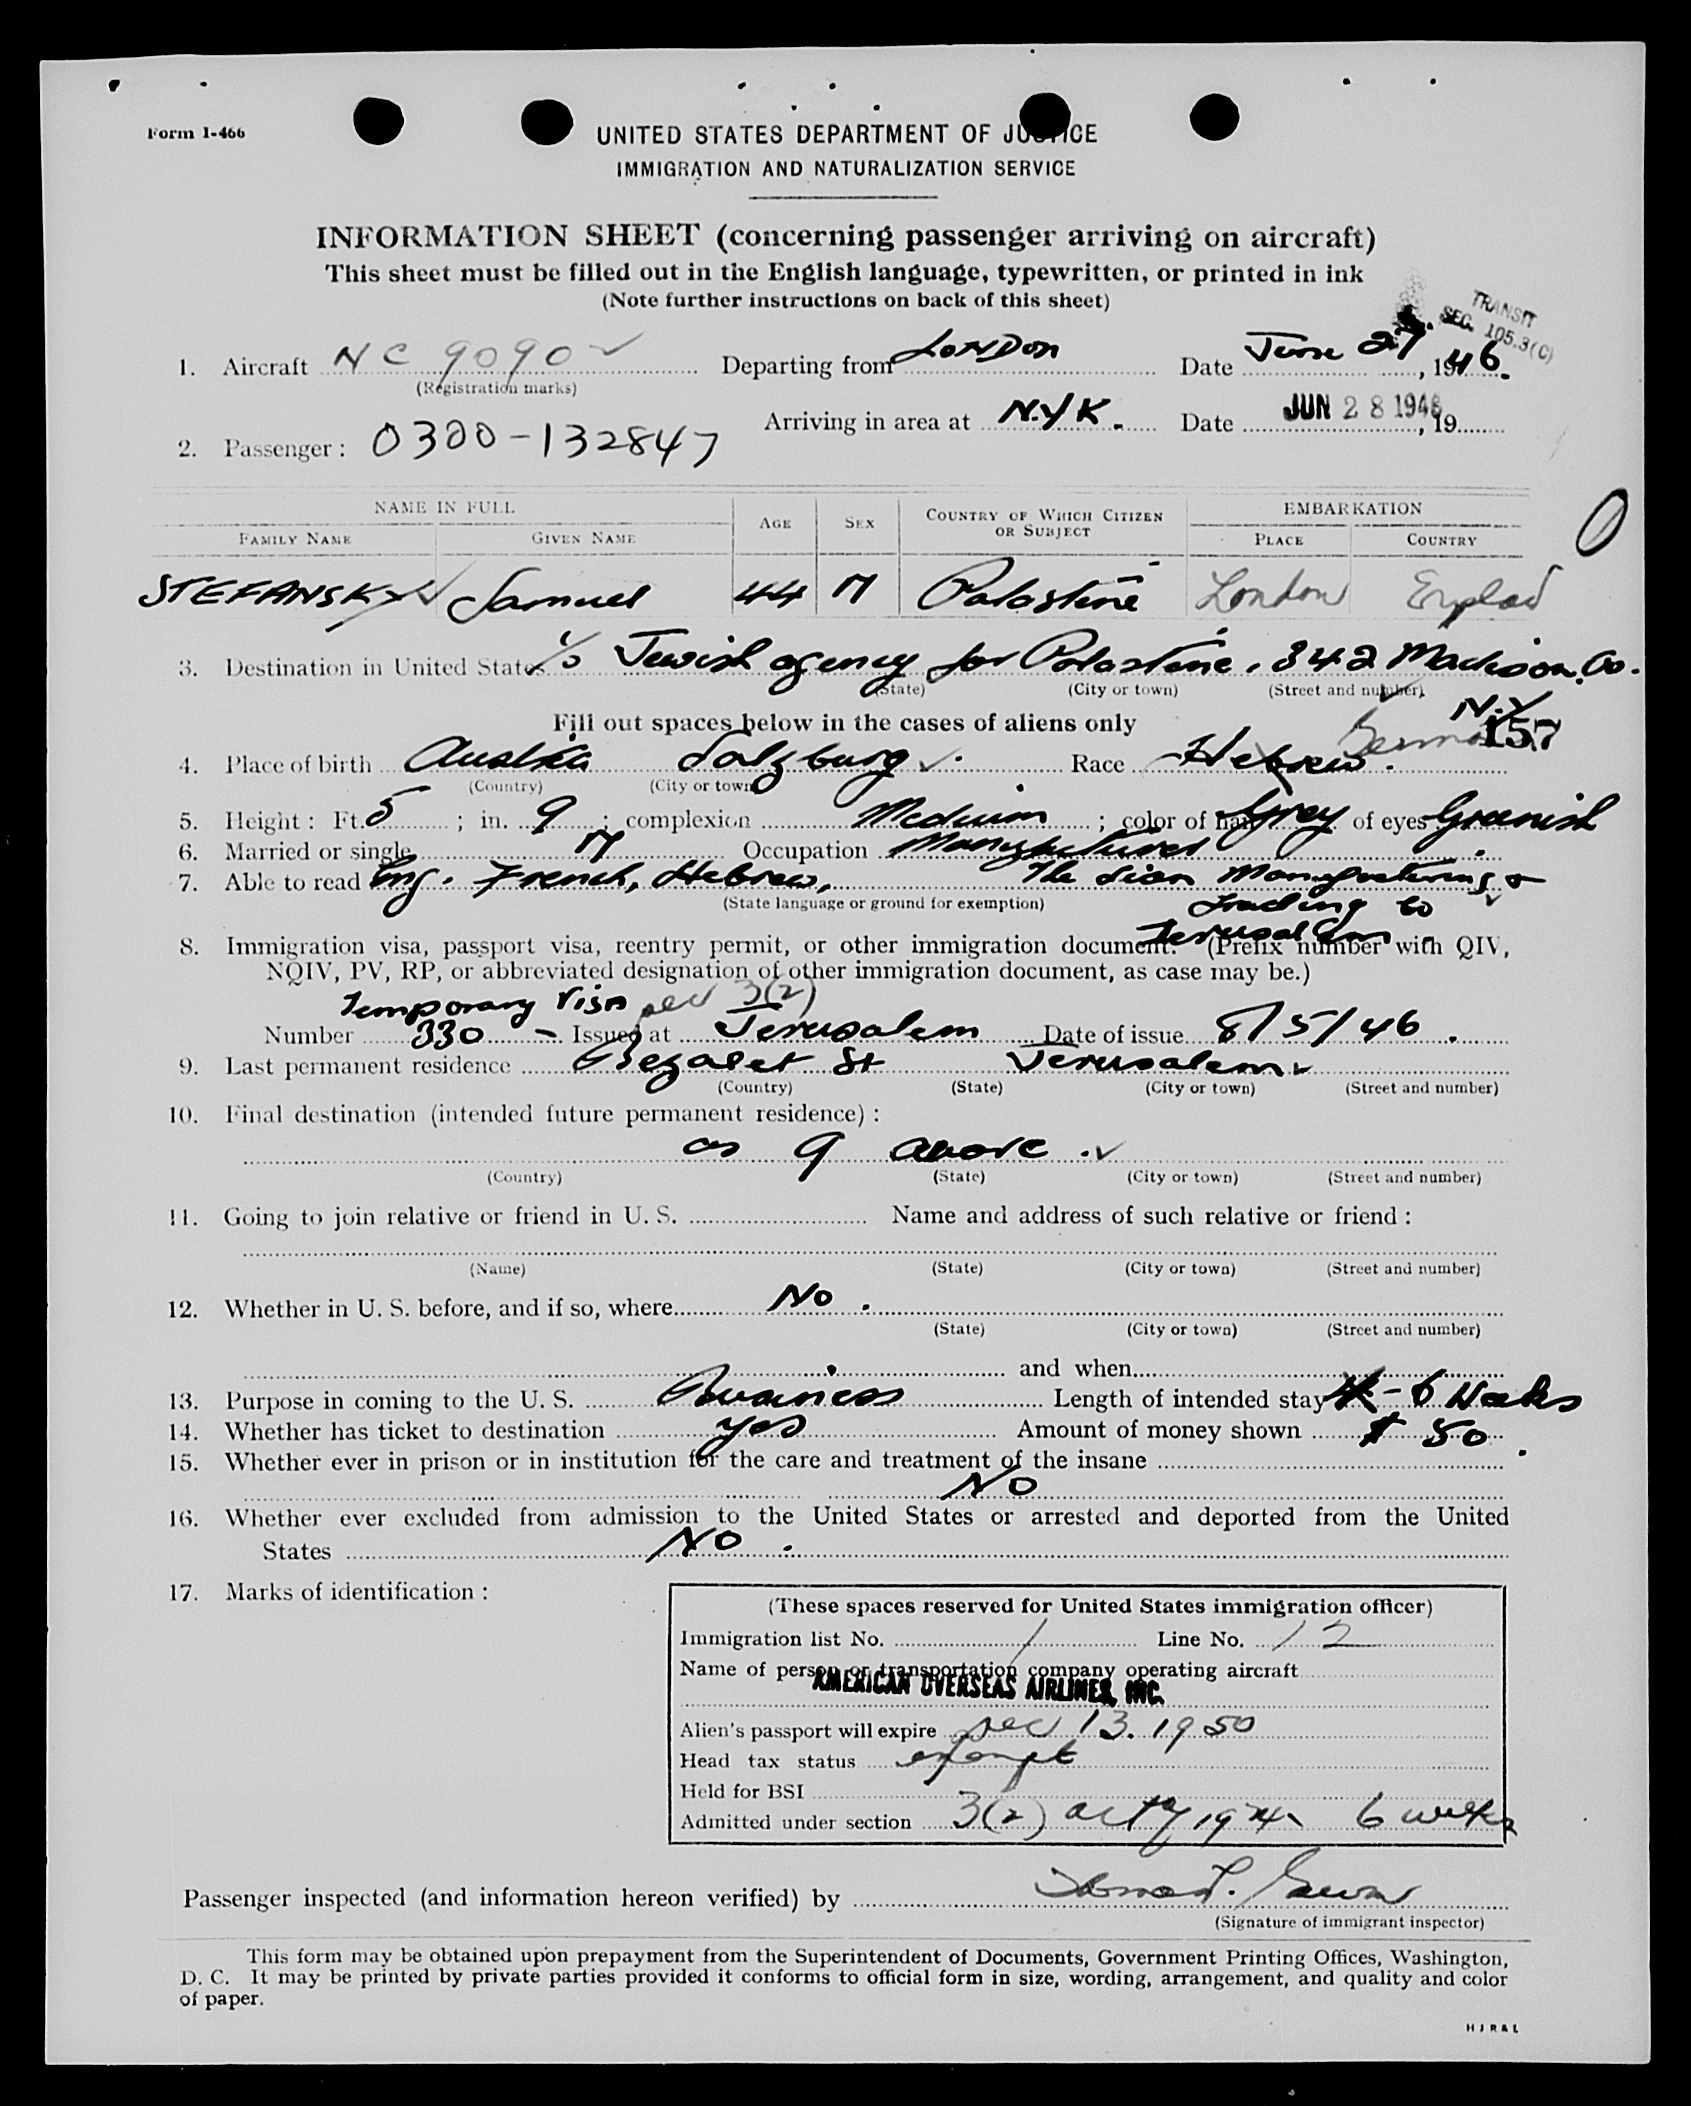 Form I-466
UNITED STATES DEPARTMENT OF JUSTICE
IMMIGRATION AND NATURALIZATION SERVICE
INFORMATION SHEET (concerning passenger arriving on aircraft)
This sheet must be filled out in the English language, typewritten, or printed in ink
(Note further instructions on back of this sheet)
TRANSIT
SEC. 105.3(C)
1. Aircraft NC 9090 Departing from LONDON Date June 27, 1946.
(Registration marks)
Arriving in area at N.Y.K. Date JUN 28 1946, 19
2. Passenger: 0300-132847
NAME IN FULL AGE SEX COUNTRY OF WHICH CITIZEN OR SUBJECT EMBARKATION
FAMILY NAME GIVEN NAME PLACE COUNTRY
STEFANSKY Samuel 44 M Palastine London England
3. Destination in United States c/o Jewish agency for Palastine, 342 Madison Av.
(State) (City or town) (Street and number)
N.Y
Fill out spaces below in the cases of aliens only
157
4. Place of birth Austria Salzburg Race Hebrew.
(Country) (City or town)
5. Height: Ft. 5; in. 9; complexion Medium; color of hair Grey of eyes Greenish
6. Married or single M Occupation Manufacturer
7. Able to read Eng. French, Hebrew, The Sion Manufacturing &
(State language or ground for exemption) Trading Co
Jerusalem
8. Immigration visa, passport visa, reentry permit, or other immigration document. (Prefix number with QIV,
NQIV, PV, RP, or abbreviated designation of other immigration document, as case may be.)
Temporary Visa sec 3(2)
Number 330 - Issued at Jerusalem Date of issue 8/5/46.
9. Last permanent residence Bezalel St Jerusalem
(Country) (State) (City or town) (Street and number)
10. Final destination (intended future permanent residence):
as 9 above.
(Country) (State) (City or town) (Street and number)
11. Going to join relative or friend in U. S. Name and address of such relative or friend:
(Name) (State) (City or town) (Street and number)
12. Whether in U. S. before, and if so, where No.
(State) (City or town) (Street and number)
and when
13. Purpose in coming to the U. S. Business Length of intended stay 4-6 Weeks
14. Whether has ticket to destination yes Amount of money shown $ 50.
15. Whether ever in prison or in institution for the care and treatment of the insane
NO
16. Whether ever excluded from admission to the United States or arrested and deported from the United
States NO.
17. Marks of identification:
(These spaces reserved for United States immigration officer)
Immigration list No. 1 Line No. 12
Name of person or transportation company operating aircraft
AMERICAN OVERSEAS AIRLINES, INC.
Alien's passport will expire Dec 13. 1950
Head tax status exempt
Held for BSI
Admitted under section 3(2) act of 1924 6 weeks
Passenger inspected (and information hereon verified) by
(Signature of immigrant inspector)
This form may be obtained upon prepayment from the Superintendent of Documents, Government Printing Offices, Washington,
D. C. It may be printed by private parties provided it conforms to official form in size, wording, arrangement, and quality and color
of paper.
H J R & L